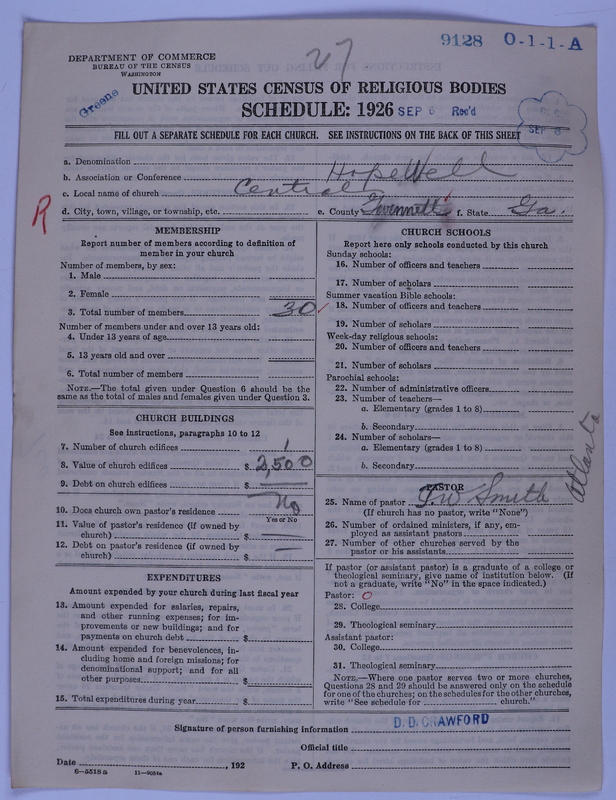 9128 O-1-1-A
27
DEPARTMENT OF COMMERCE
BUREAU OF THE CENSUS
WASHINGTON
Greene
UNITED STATES CENSUS OF RELIGIOUS BODIES
SCHEDULE: 1926 SEP 6 Rec'd
SEP 6
FILL OUT A SEPARATE SCHEDULE FOR EACH CHURCH. SEE INSTRUCTIONS ON THE BACK OF THIS SHEET
a. Denomination
b. Association or Conference HopeWell
c. Local name of church Central
R
d. City, town, village, or township, etc. e. County Gwinnett f. State Ga.
MEMBERSHIP
Report number of members according to definition of
member in your church
Number of members, by sex:
1. Male
2. Female
3. Total number of members 30
Number of members under and over 13 years old:
4. Under 13 years of age
5. 13 years old and over
6. Total number of members
NOTE.—The total given under Question 6 should be the
same as the total of males and females given under Question 3.
CHURCH BUILDINGS
See instructions, paragraphs 10 to 12
7. Number of church edifices 1
8. Value of church edifices $ 2,500
9. Debt on church edifices $
10. Does church own pastor's residence No
Yes or No
11. Value of pastor's residence (if owned by
church) $
12. Debt on pastor's residence (if owned by
church) $
EXPENDITURES
Amount expended by your church during last fiscal year
13. Amount expended for salaries, repairs,
and other running expenses; for im-
provements or new buildings; and for
payments on church debt $
14. Amount expended for benevolences, in-
cluding home and foreign missions; for
denominational support; and for all
other purposes $
15. Total expenditures during year $
CHURCH SCHOOLS
Report here only schools conducted by this church
Sunday schools:
16. Number of officers and teachers
17. Number of scholars
Summer vacation Bible schools:
18. Number of officers and teachers
19. Number of scholars
Week-day religious schools:
20. Number of officers and teachers
21. Number of scholars
Parochial schools:
22. Number of administrative officers
23. Number of teachers—
a. Elementary (grades 1 to 8)
b. Secondary
24. Number of scholars—
a. Elementary (grades 1 to 8)
b. Secondary
Atlanta
PASTOR
25. Name of pastor Smith
(If church has no pastor, write "None")
26. Number of ordained ministers, if any, em-
ployed as assistant pastors
27. Number of other churches served by the
pastor or his assistants
If pastor (or assistant pastor) is a graduate of a college or
theological seminary, give name of institution below. (If
not a graduate, write "No" in the space indicated.)
Pastor: O
28. College
29. Theological seminary
Assistant pastor:
30. College
31. Theological seminary
NOTE.—Where one pastor serves two or more churches,
Questions 28 and 29 should be answered only on the schedule
for one of the churches; on the schedules for the other churches,
write "See schedule for church."
Signature of person furnishing information D. D. CRAWFORD
Official title
Date , 192 P. O. Address
6—5518a 11—9054a